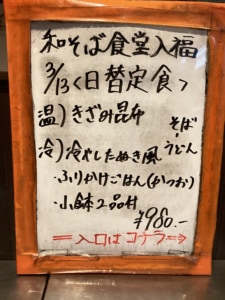 和そば食堂入福
3/13〈日替定食〉
温)きざみ昆布
そば
冷)冷やしたぬき風うどん
・ふりかけごはん(かつお)
・小鉢2品付
¥980.-
⇐入口はコチラ⇒